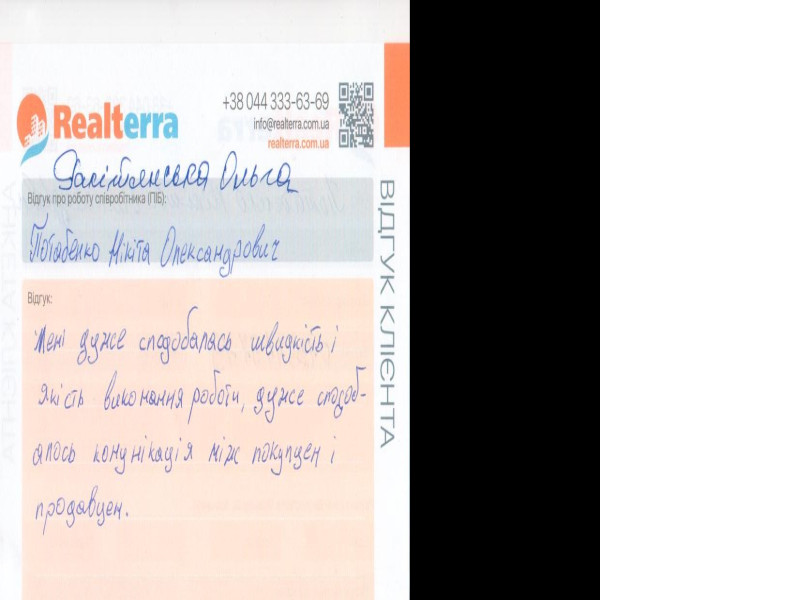 Realterra
+38 044 333-63-69
info@realterra.com.ua
realterra.com.ua
Ольга
Відгук про роботу співробітника (ПІБ):
Потабенко Нікіта Олександрович
ВІДГУК КЛІЄНТА
Відгук:
Мені дуже сподобалась швидкість і
якість виконання роботи, дуже сподоб-
алось комунікація між покупцем і
продавцем.